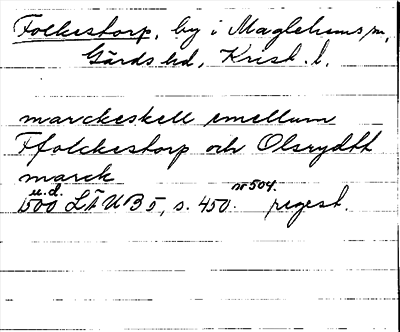 Folkestorp, by i Maglehems sn,
Gärds hd, Krist. l.
marckeskell emellum
Ffolckestorp och Olsrydth
marck
u.d. nr 504.
1500 LÄUB 5, s. 450. regest.